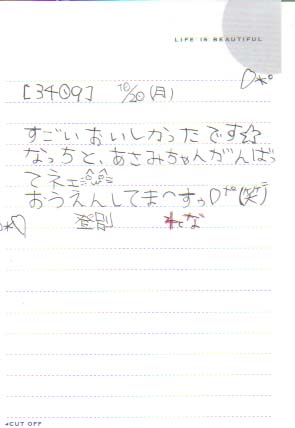 LIFE IS BEAUTIFUL
[3409] 10/20(月)
すごいおいしかったです☆
なっちと、あさみちゃんがんばっ
てネェ
おうえんしてまーすっ♡(笑)
登別 な
CUT OFF